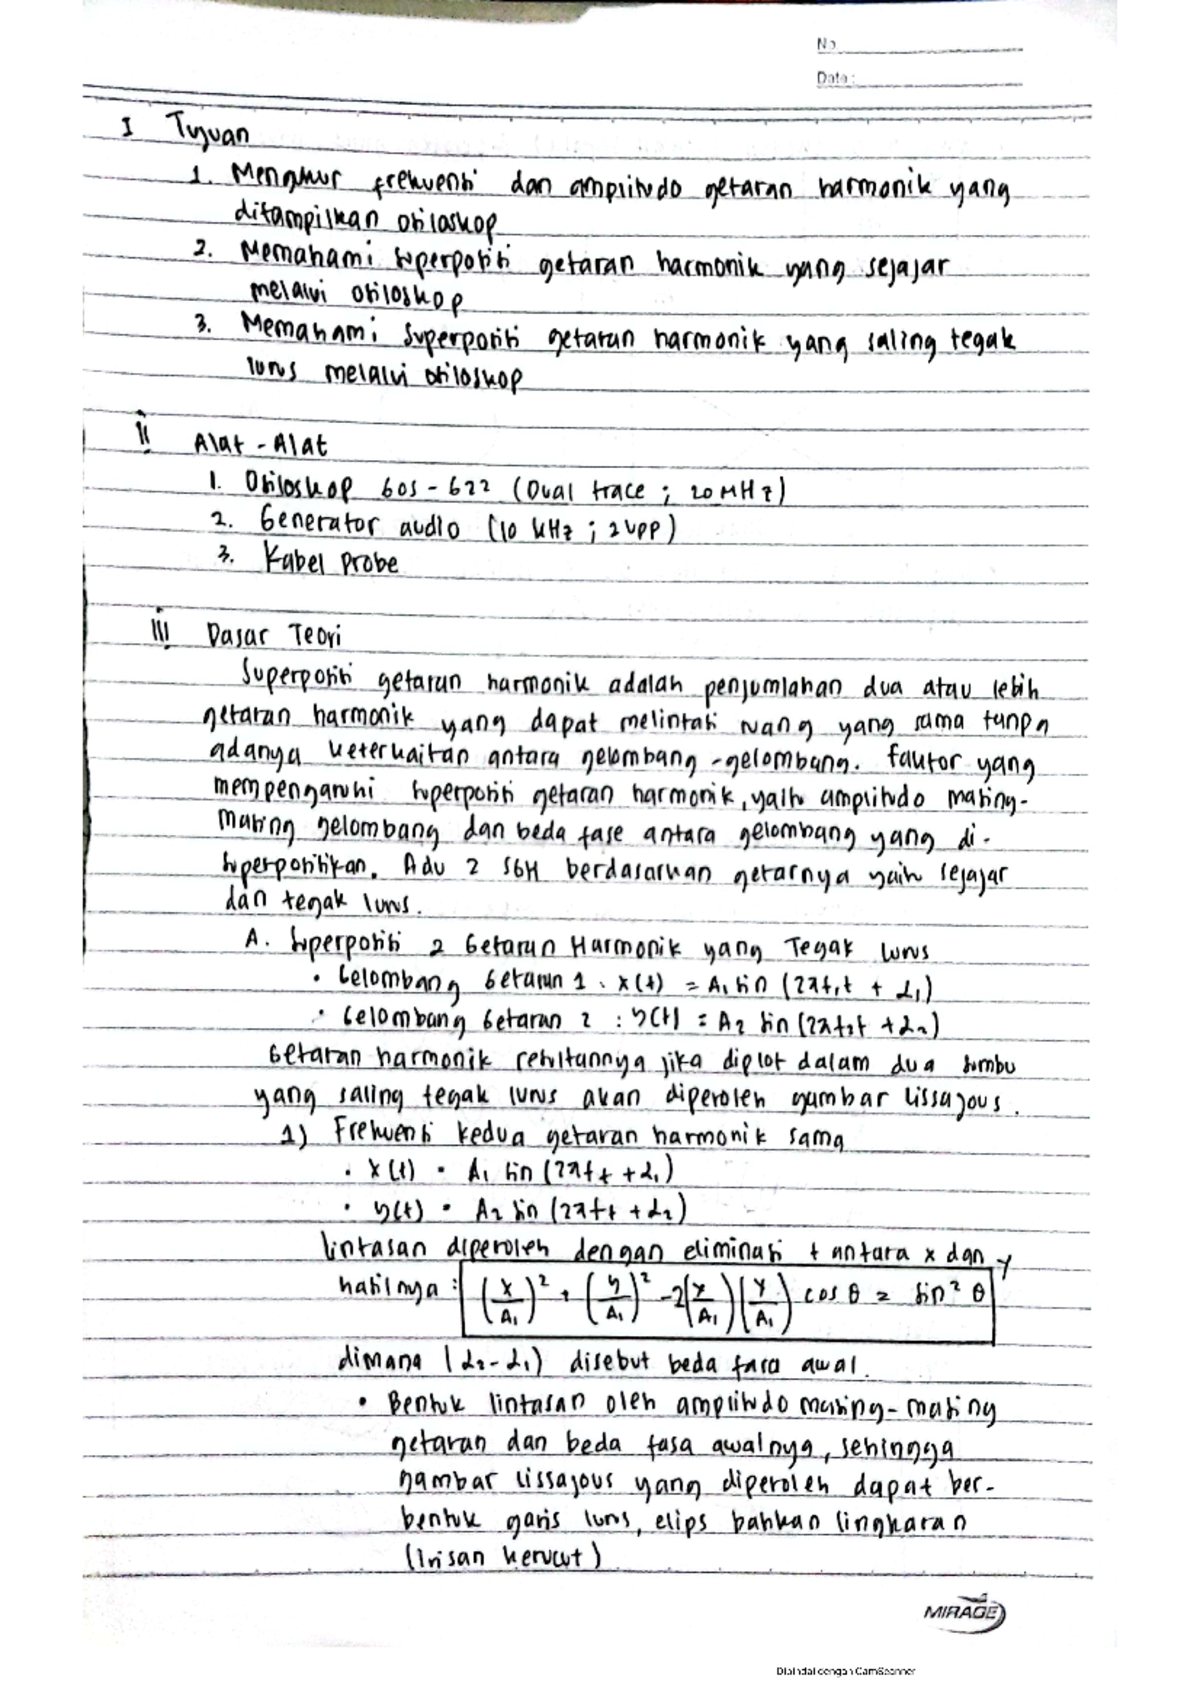 No
Date :
I Tujuan
1. Mengukur frekuensi dan amplitudo getaran harmonik yang
ditampilkan osiloskop
2. Memahami superposisi getaran harmonik yang sejajar
melalui osiloskop
3. Memahami superposisi getaran harmonik yang saling tegak
lurus melalui osiloskop
II Alat - Alat
1. Osiloskop GOS - 622 (Dual trace ; 20 MHz)
2. Generator audio (10 kHz ; 2 Vpp)
3. Kabel Probe
III Dasar Teori
Superposisi getaran harmonik adalah penjumlahan dua atau lebih
getaran harmonik yang dapat melintasi ruang yang sama tanpa
adanya keterkaitan antara gelombang - gelombang. Faktor yang
mempengaruhi superposisi getaran harmonik, yaitu amplitudo masing-
masing gelombang dan beda fase antara gelombang yang di-
superposisikan. Ada 2 SGH berdasarkan getarnya yaitu sejajar
dan tegak lurus.
A. Superposisi 2 Getaran Harmonik yang Tegak Lurus
• Gelombang Getaran 1 : x(t) = A₁ sin (2πf₁t + α₁)
• Gelombang Getaran 2 : y(t) = A₂ sin (2πf₂t + α₂)
Getaran harmonik resultannya jika diplot dalam dua sumbu
yang saling tegak lurus akan diperoleh gambar lissajous.
1) Frekuensi kedua getaran harmonik sama
• x(t) = A₁ sin (2πft + α₁)
• y(t) = A₂ sin (2πft + α₂)
lintasan diperoleh dengan eliminasi t antara x dan y
hasilnya : (x/A₁)² + (y/A₁)² - 2(x/A₁)(y/A₁) cos θ = sin² θ
dimana (α₂-α₁) disebut beda fasa awal.
• Bentuk lintasan oleh amplitudo masing-masing
getaran dan beda fasa awalnya, sehingga
gambar lissajous yang diperoleh dapat ber-
bentuk garis lurus, elips bahkan lingkaran
(Irisan kerucut)
MIRAGE
Dipindai dengan CamScanner